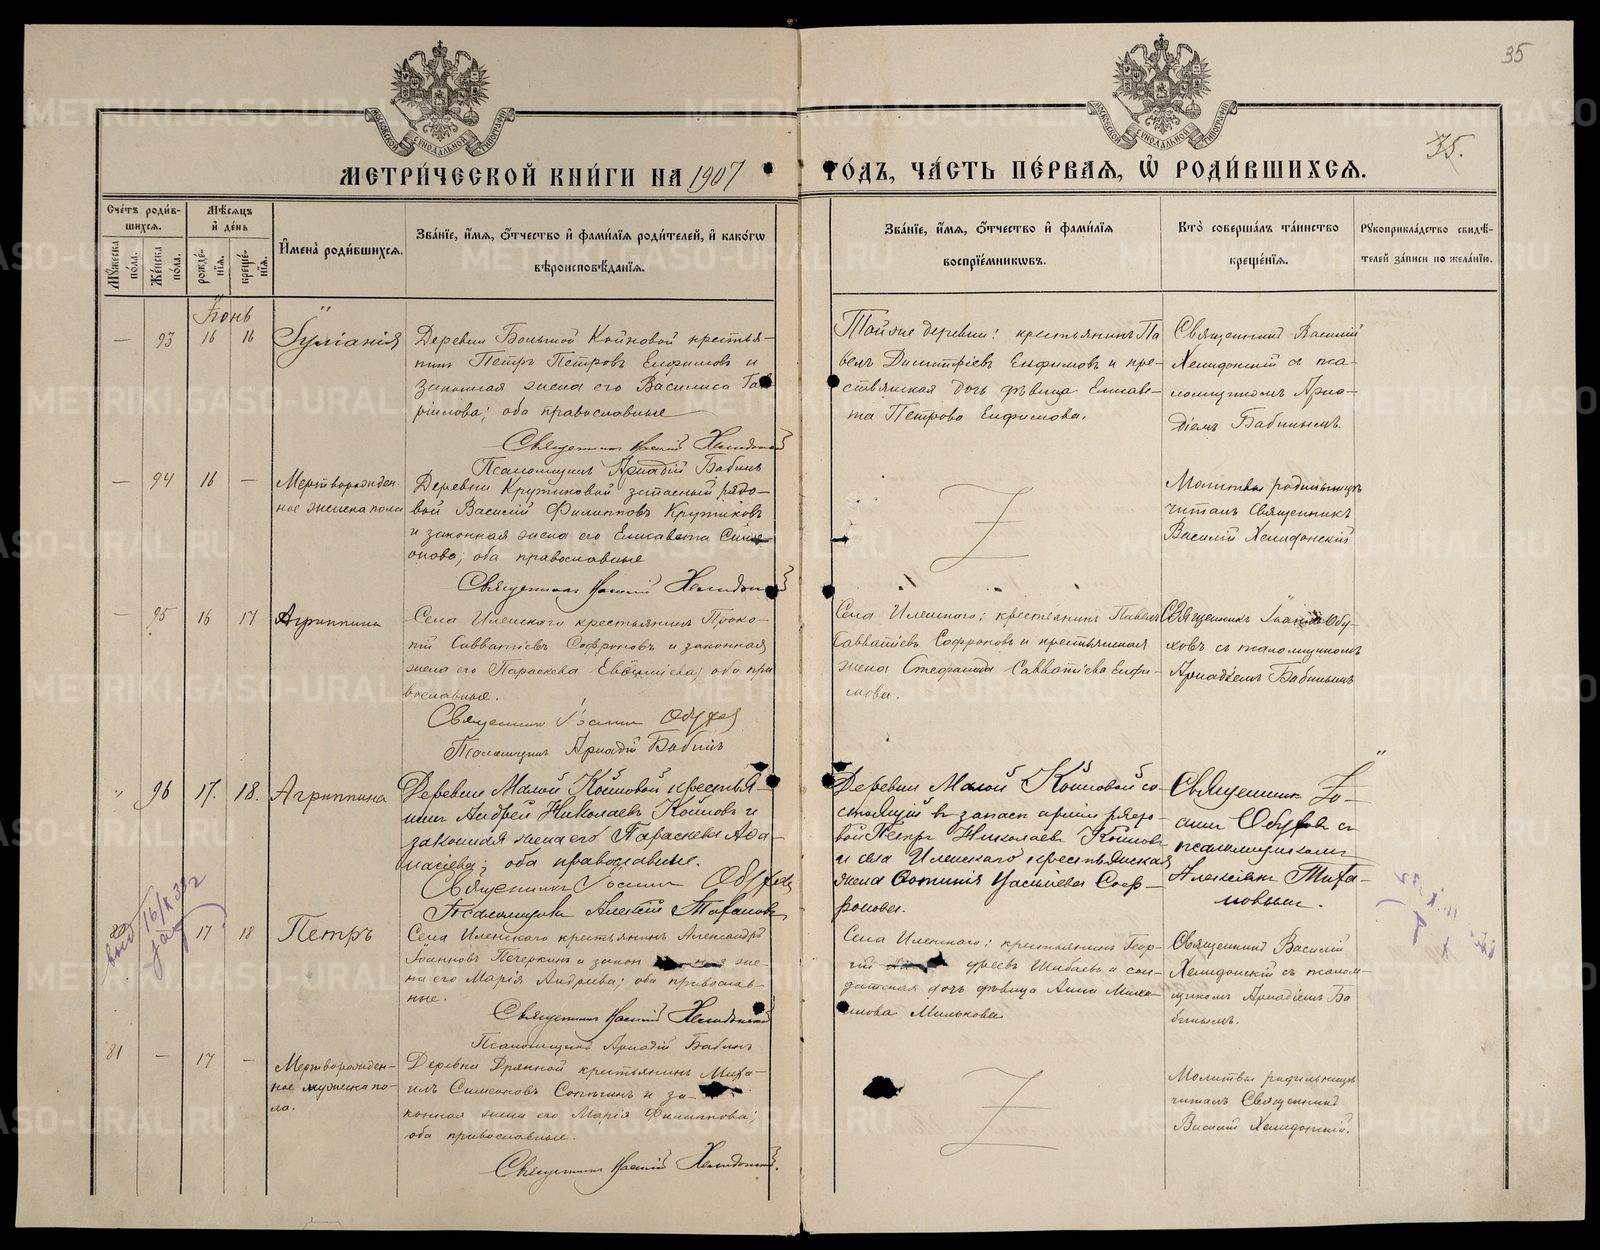 35
МОСКОВСКОЙ СѴНОДАЛЬНОЙ ТИПОГРАФІИ
МОСКОВСКОЙ СѴНОДАЛЬНОЙ ТИПОГРАФІИ
35.
МЕТРИ́ЧЕСКОЙ КНИ́ГИ НА 1907
ГО́ДЪ, ЧА́СТЬ ПЕ́РВАѦ, Ѿ РОДИ́ВШИХСѦ.
Сче́тъ роди́в-
шихсѧ.
Мѣ́сѧцъ
и҆ де́нь
Мꙋ́жеска по́ла.
Же́нска по́ла.
рожде́-
нїѧ.
креще́-
нїѧ.
И҆мена̀ роди́вшихсѧ.
Зва́нїе, и҆́мѧ, ѻ҆́тчество и҆ фами́лїѧ роди́телей, и҆ како́гѡ
вѣроисповѣ́данїѧ.
Зва́нїе, и҆́мѧ, ѻ҆́тчество и҆ фами́лїѧ
воспрїе́мникѡвъ.
Кто̀ соверша́лъ та́инство
креще́нїѧ.
Рꙋкоприкла́дство свидѣ́-
телей за́писи по жела́нїю.
Іюнь
— 93 16 16 Іуліанія
Деревни Большой Койновой крестья-
нинъ Петръ Петровъ Елфимовъ и
законная жена его Василиса Гав
ріилова; оба православные
Священникъ Василій Хелидонскій
Псаломщикъ Аркадій Бабинъ
Той же деревни: крестьянинъ Па-
велъ Димитріевъ Елфимовъ и кре-
стьянская дочь дѣвица Елисаве-
та Петрова Елфимова.
Священникъ Василій
Хелидонскій съ пса-
ломщикомъ Арка-
діемъ Бабинымъ.
— 94 16 —
Мертворожден-
ное женска пола
Деревни Крутиковой запасный рядо-
вой Василій Филипповъ Крутиковъ
и законная жена его Елисавета Симе-
онова; оба православные
Священникъ Василій Хелидонскій
Молитвы родильницѣ
читалъ Священникъ
Василій Хелидонскій
— 95 16 17 Агриппина
Села Иленскаго крестьянинъ Проко-
пій Савватіевъ Софроновъ и законная
жена его Параскева Евѳиміева; оба пра
вославные.
Священникъ Іоаннъ Обуховъ
Псаломщикъ Аркадій Бабинъ
Села Иленскаго; крестьянинъ Павелъ
Савватіевъ Софроновъ и крестьянская
жена Стефанида Савватіева Елфи-
мова.
Священникъ Іоаннъ Обу-
ховъ съ псаломщикомъ
Аркадіемъ Бабинымъ
" 96 17. 18. Агриппина
Деревни Малой Койновой крестья-
нинъ Андрей Николаевъ Койновъ и
законная жена его Параскева Аѳа-
насіева; оба православные.
Священникъ Іоаннъ Обуховъ
Псаломщикъ Алексій Тихановъ
Деревни Малой Койновой со-
стоящій въ запасѣ арміи рядо-
вой Петръ Николаевъ Койновъ
и села Иленскаго крестьянская
жена Васильева Соф-
ронова.
Священникъ Іо-
аннъ Обуховъ съ
псаломщикомъ
Алексіемъ Тиха-
новымъ.
17 18 Петръ
Села Иленскаго крестьянинъ Александръ
Іоанновъ Печеркинъ и закон же-
на его Марія Андреева; оба православ-
ные.
Священникъ Василій Хелидонскій
Псаломщикъ Аркадій Бабинъ
Села Иленскаго; крестьянинъ Геор-
гій дреевъ Шибаевъ и сол-
датская дочь дѣвица Анна Миха-
илова Милькова
Священникъ Василій
Хелидонскій съ псалом-
щикомъ Аркадіемъ Ба
бинымъ.
81 — 17 —
Мертворожден-
ное мужеска по-
ла.
Деревни Дрянной крестьянинъ Миха-
илъ Симеоновъ и за-
конная жена его Марія Филиппова;
оба православные.
Священникъ Василій Хелидонскій.
Молитвы родильницѣ
читалъ Священникъ
Василій Хелидонскій.
METRIKI.GASO-URAL.RU